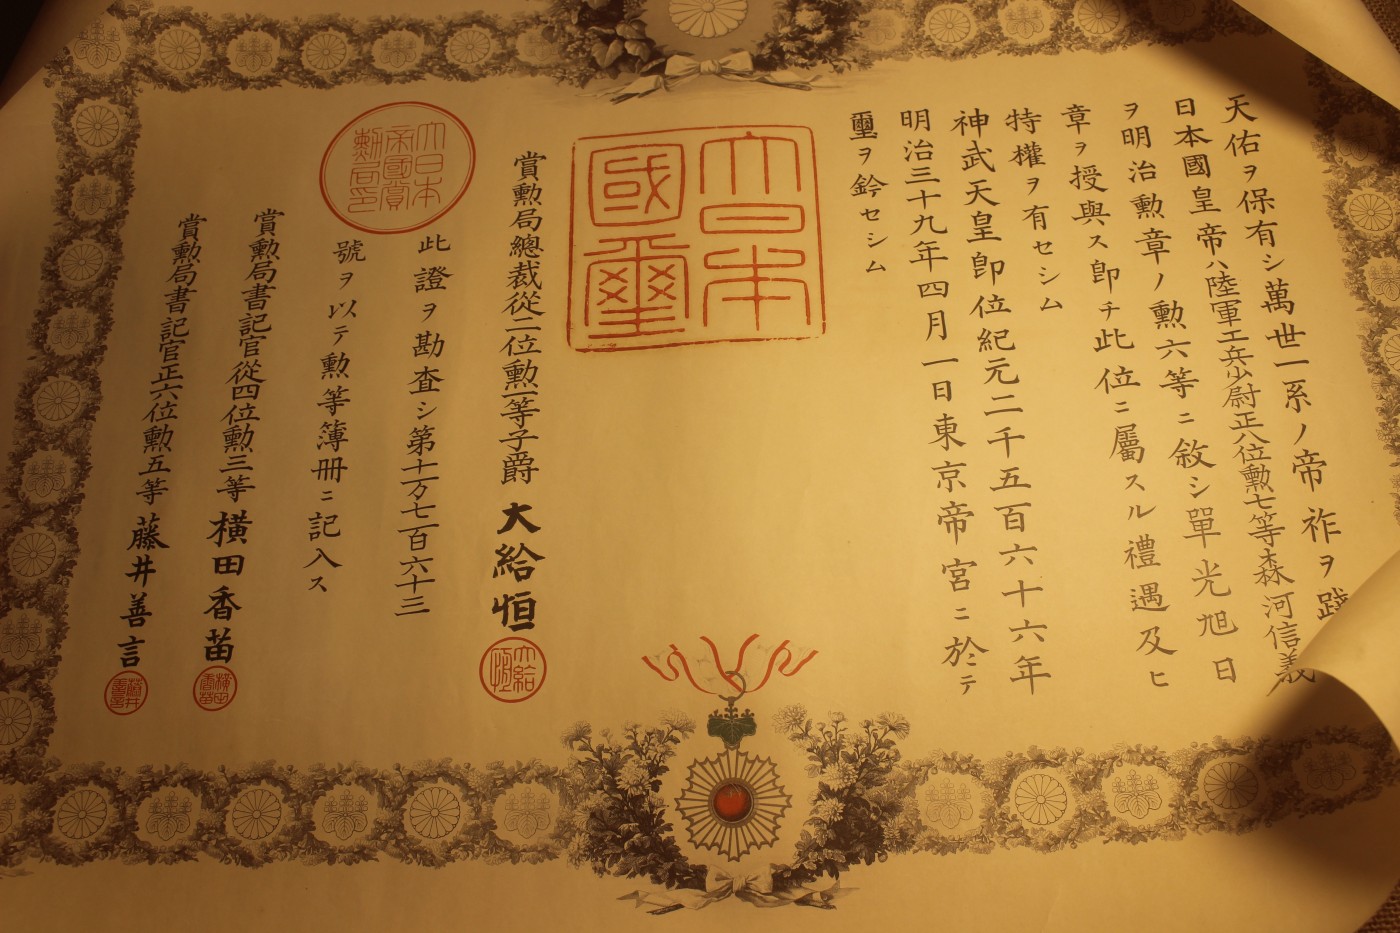 天佑ヲ保有シ萬世一系ノ帝祚ヲ踐
日本國皇帝ハ陸軍工兵少尉正八位勲七等森河信義
ヲ明治勲章ノ勲六等ニ敘シ單光旭日
章ヲ授與ス即チ此位ニ屬スル禮遇及ヒ
特權ヲ有セシム
神武天皇即位紀元二千五百六十六年
明治三十九年四月一日東京帝宮ニ於テ
璽ヲ鈐セシム
大日本
國璽
賞勲局總裁從二位勲一等子爵大給恒
大給
恒
此證ヲ勘査シ第十一万七百六十三
號ヲ以テ勲等簿冊ニ記入ス
大日本
帝國賞
勲局印
賞勲局書記官從四位勲三等横田香苗
横田
香苗
賞勲局書記官正六位勲五等藤井善言
藤井
善言